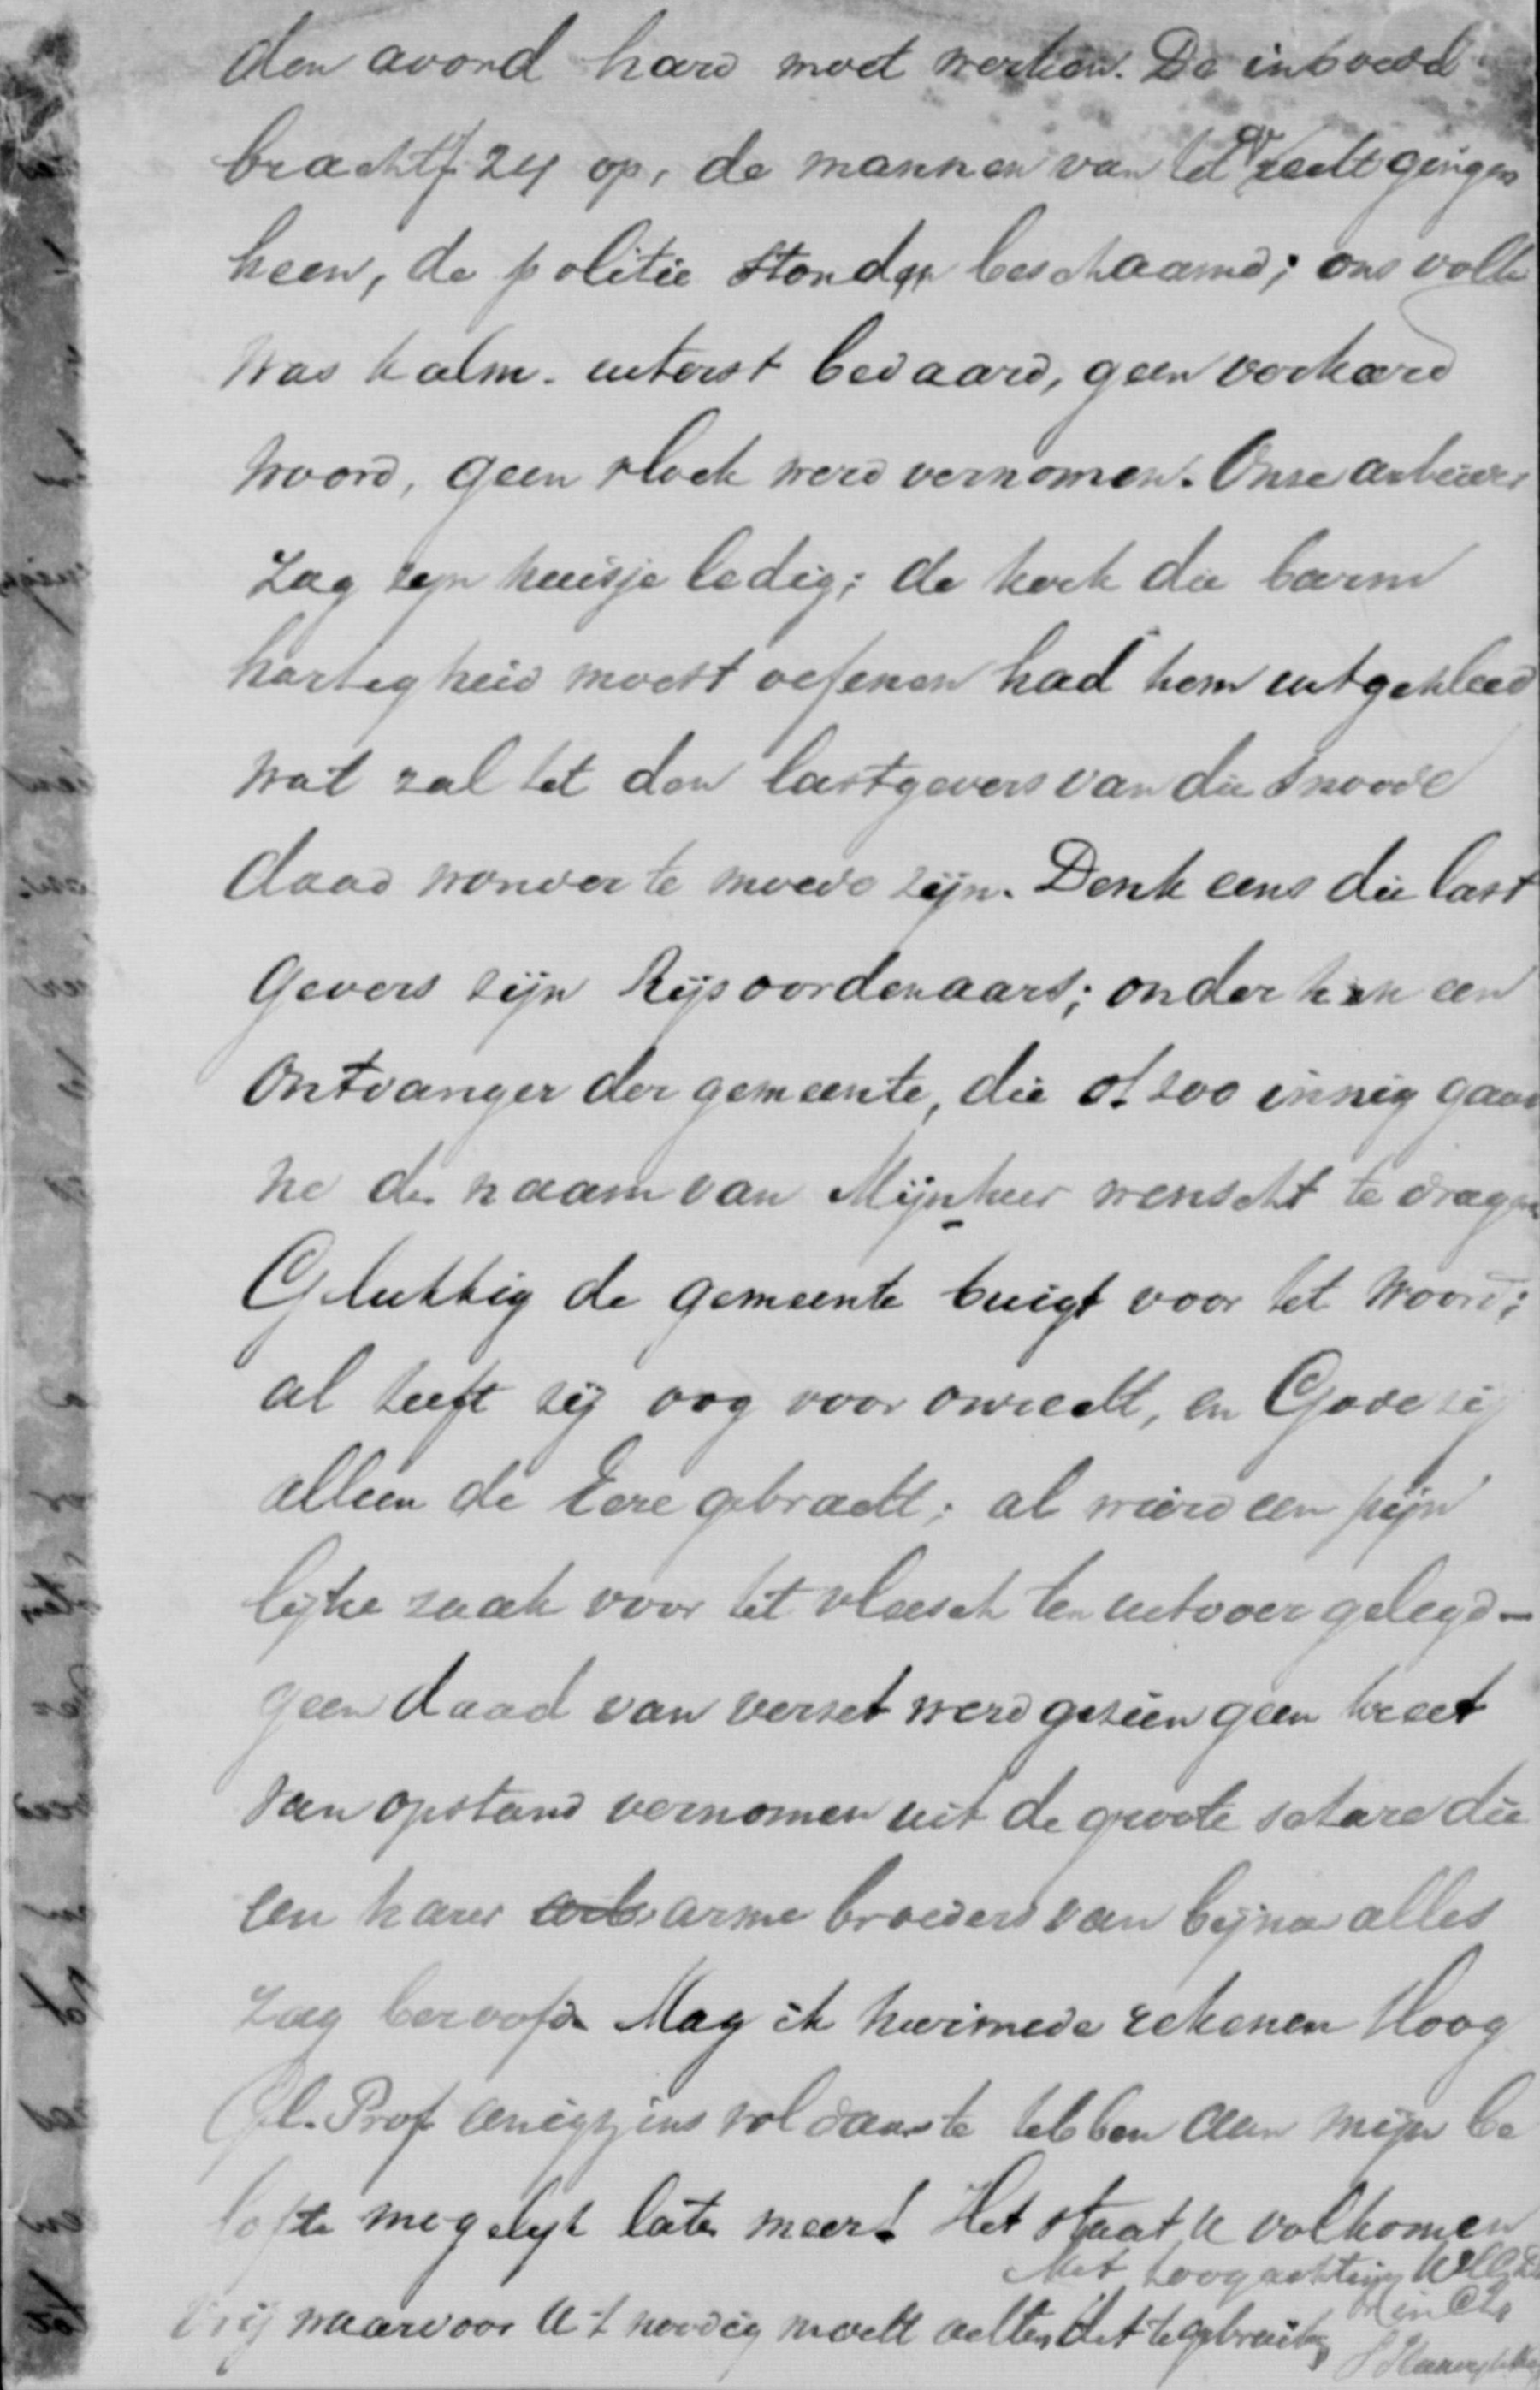 den avond hard moet werken. De inboedel
bracht f 24 op, de mannen van het recht gingen
heen, de politie stonden beschaamd; ons volk
was kalm. uiterst bedaard, geen verkeerd
woord, geen vloek werd vernomen. Onze arbeider
zag zijn huisje ledig; de kerk die barm
hartigheid moest oefenen had hem uitgekleed
wat zal het den lastgevers van die snoode
daad wonder te moede zijn. Denk eens die last
gevers zijn Rijsoordenaars; onder hen een
Ontvanger der gemeente, die o! zoo innig gaar
ne de naam van Mijnheer wenscht te dragen
Gelukkig de gemeente buigt voor het woord;
al heeft zij oog voor onrecht, en Gode zij
alleen de Eere gebracht; al werd een pijn
lijke zaak voor het vleesch ten uitvoer gelegd -
geen daad van verzet werd gezien geen kreet
van opstand vernomen uit de groote schare die
een harer arme broeders van bijna alles
zag beroofd. Mag ik hiermede rekenen Hoog
Gel. Prof eenigzins voldaan te hebben aan mijn be
lofte mogelijk later meer! Het staat u volkomen
vrij waarvoor U 't noodig mocht achten dit te gebruiken
Met hoogachting